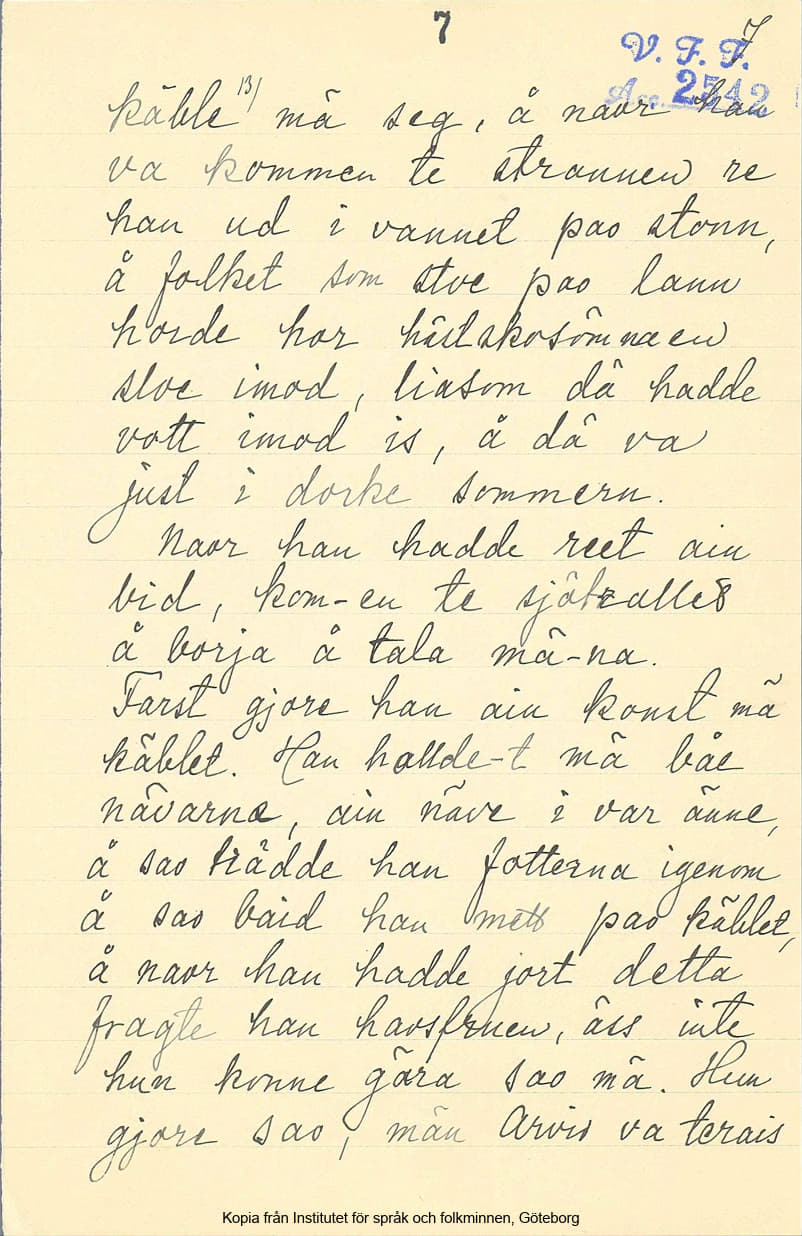 7
7
V. F. F.
Acc. 2542
käble 13) mä seg, å naor han
va kommen te strannen re
han ud i vannet pao stonn,
å folket som stoe pao lann
horde hor hästskosömnaen
sloe imod, liasom dä hadde
vott imod is, å dä va
just i dorke sommern.
Naor han hadde reet ain
bid, kom-en te sjötrallet
å borja å tala mä-na.
Farst gjore han ain konst mä
käblet. Han hallde-t mä båe
nävarna, ain näve i var änne,
å sao trädde han fotterna igenom
å sao baid han mett pao käblet,
å naor han hadde jort detta
fragte han havsfruen, äss inte
hun konne gära sao mä. Hun
gjore sao, män Arvid va terais
Kopia från Institutet för språk och folkminnen, Göteborg